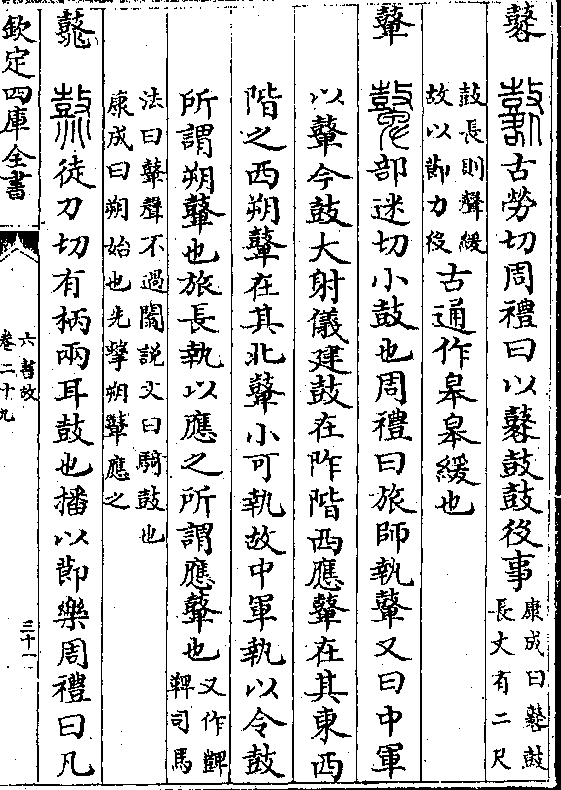 鼛 古勞切周禮曰以鼛鼓鼓役事
康成曰鼛鼓
長丈有二尺
鼓長則聲緩
故以節力役
古通作皋皋緩也
鼙 部迷切小鼓也周禮曰旅師執鼙又曰中軍
以鼙今鼓大射儀建鼓在阼階西應鼙在其東西
階之西朔鼙在其北鼙小可執故中軍執以令鼓
所謂朔鼙也旅長執以應之所謂應鼙也
又作
鞞司馬
法曰鼙聲不過闒說文曰騎鼓也
康成曰朔始也先擊朔鼙應之
鼗 徒刀切有柄兩耳鼓也播以節樂周禮曰凡
欽定四庫全書
六書故
卷二十九
三十一